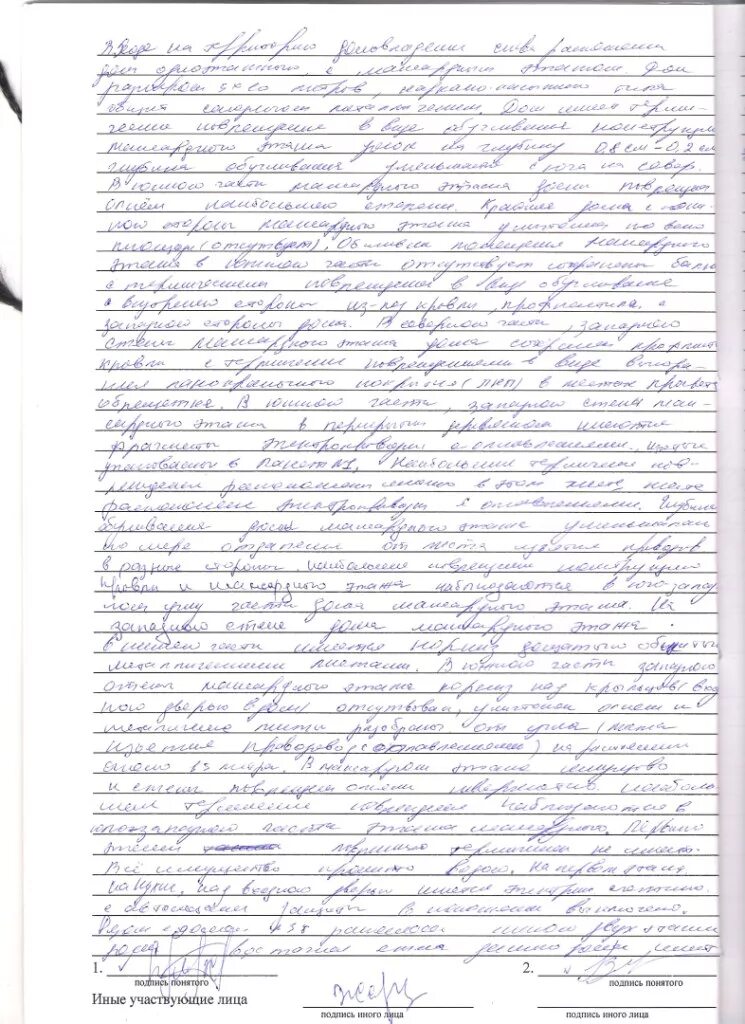 на территорию домовладения слева расположен
дом одноэтажный, с мансардным этажом. Дом
размером метров, каркасно-насыпного типа
обшит металлическим. Дом имеет терми-
ческие повреждения в виде обугливания конструкции
мансардного этажа дома на глубину 0,8 см - 0,2 см
глубина обугливания уменьшается с юга на север.
В южной части мансардного этажа дома повреждена
огнём наибольшей степени. Крыша дома с юж-
ной стороны мансардного этажа уничтожена по всей
площади (отсутствует). Обшивка помещения мансардного
этажа в южной части отсутствует, сохранены балки
с термическими повреждениями в виде обугливания
с внутренней стороны из-под кровли, профнастила с
западной стороны дома. В северной части, западной
стены мансардного этажа дома сохранён
кровли с термическими повреждениями в виде выгора-
ния лакокрасочного покрытия (ЛКП) в местах
обрешётки. В южной части, западной стены ман-
сардного этажа в перекрытии деревянном имеются
фрагменты электропроводки с оплавлением, изъятые
упакованы в Пакет №1. Наибольшие термические пов-
реждения расположены именно в этом месте, месте
расположения электропроводки с оплавлением. Глубина
обугливания дома мансардного этажа уменьшается
по мере отдаления от места изъятия проводов
в разные стороны. Наибольшие повреждения конструкций
кровли и мансардного этажа наблюдаются в юго-запад
ном углу части дома мансардного этажа. На
западной стене дома мансардного этажа
в нижней части имеется карниз дощатый обшитый
металлическими листами. В южной части западной
стены мансардного этажа карниз над крыльцом (вход
ного дверью в дом) отсутствовал, уничтожен огнём и
металлические листы разобраны от угла (места
изъятия проводов с оплавлением) на расстоянии
около 1,5 метра. В мансардном этаже имущество
и стены повреждены огнём наиболь-
шем термические повреждения наблюдаются в
юго-западной части этажа мансардного. Первый
этаж термических не имеет.
Всё имущество пролито водой. На первом этаже
на кухне, над входной дверью имеется электрич. счётчик
с автоматами защиты в положении выключено.
Рядом с домом расположен жилой двух этажный
дом. Восточная стена данного дома имеет
1. 2.
подпись понятого подпись понятого
Иные участвующие лица
подпись иного лица подпись иного лица